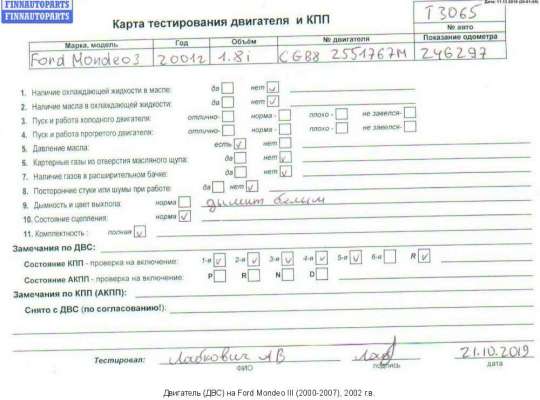 FINNAUTOPARTS
FINNAUTOPARTS
FINNAUTOPARTS
Карта тестирования двигателя и КПП
T3065
№ авто
Марка, модель Год Объём № двигателя Показание одометра
Ford Mondeo3 2001г 1.8i CGBB 2551767M 246297
1. Наличие охлаждающей жидкости в масле: да нет
2. Наличие масла в охлаждающей жидкости: да нет
3. Пуск и работа холодного двигателя: отлично- норма - плохо - не завелся-
4. Пуск и работа прогретого двигателя: отлично- норма - плохо - не завелся-
5. Давление масла: есть нет
6. Картерные газы из отверстия масляного щупа: да нет
7. Наличие газов в расширительном бачке: да нет
8. Посторонние стуки или шумы при работе: да нет
9. Дымность и цвет выхлопа: норма дымит белым
10. Состояние сцепления: норма
11. Комплектность : полная
Замечания по ДВС:
Состояние КПП - проверка на включение: 1-я 2-я 3-я 4-я 5-я 6-я R
Состояние АКПП - проверка на включение: P R N D
Замечания по КПП (АКПП):
Снято с ДВС (по согласованию!):
Тестировал: Лабкович АВ 21.10.2019
ФИО подпись дата
Двигатель (ДВС) на Ford Mondeo III (2000-2007), 2002 г.в.